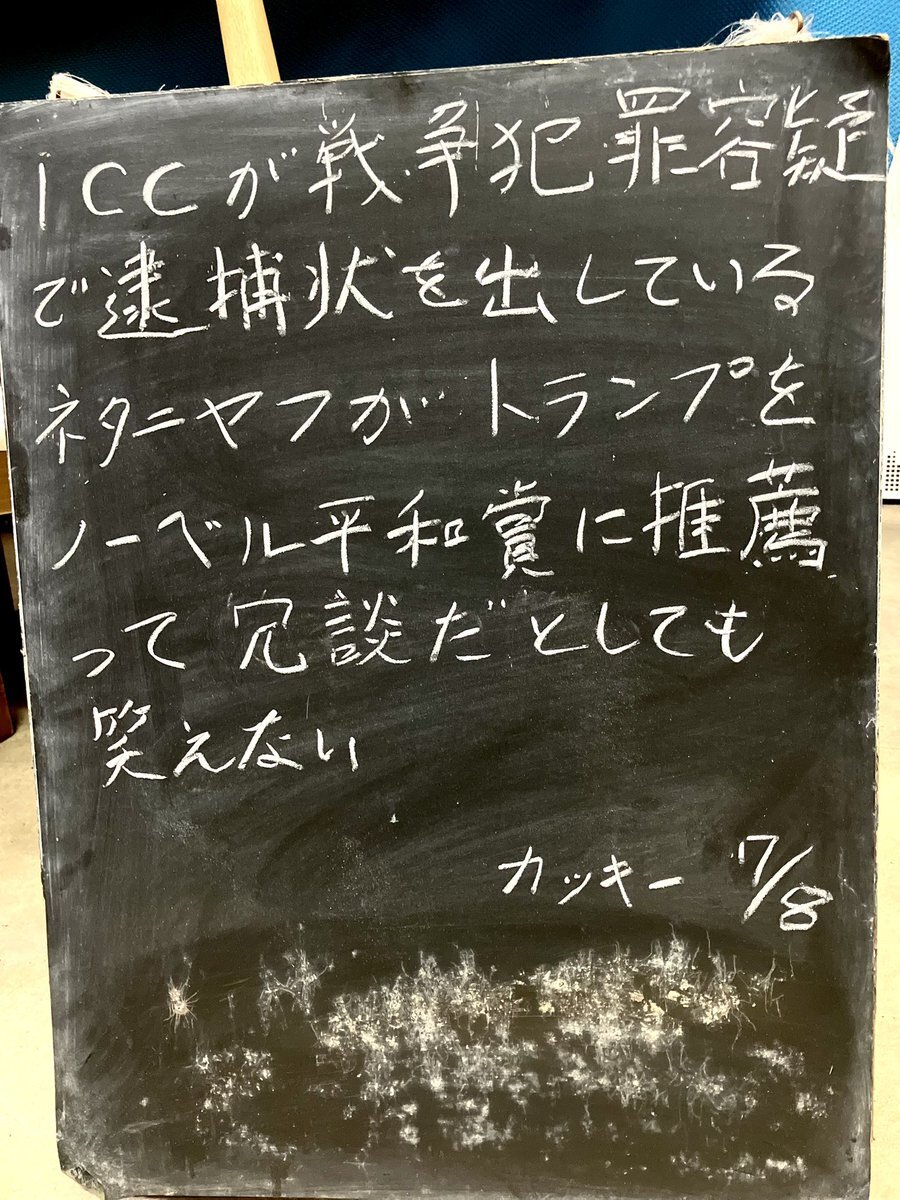 ICCが戦争犯罪容疑
で逮捕状を出している
ネタニヤフがトランプを
ノーベル平和賞に推薦
って冗談だとしても
笑えない
カッキー 7/8